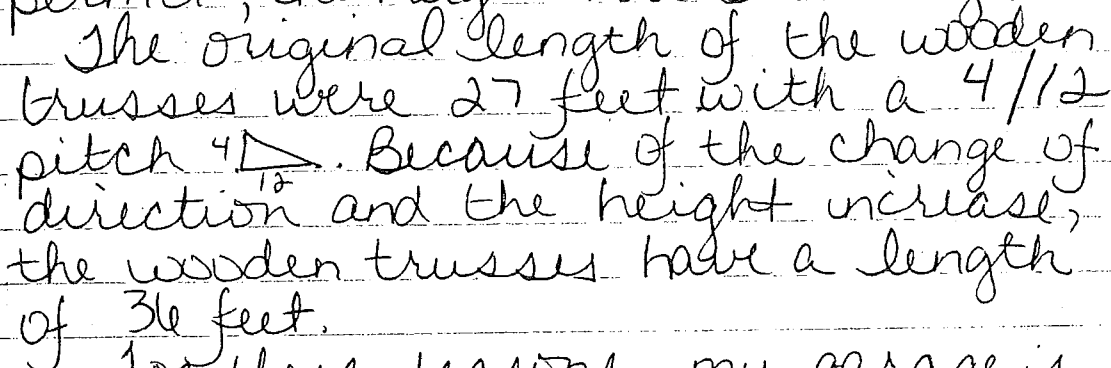 The original length of the wooden
trusses were 27 feet with a 4/12
pitch 4 12. Because of the change of
direction and the height increase,
the wooden trusses have a length
of 36 feet.
my garage is